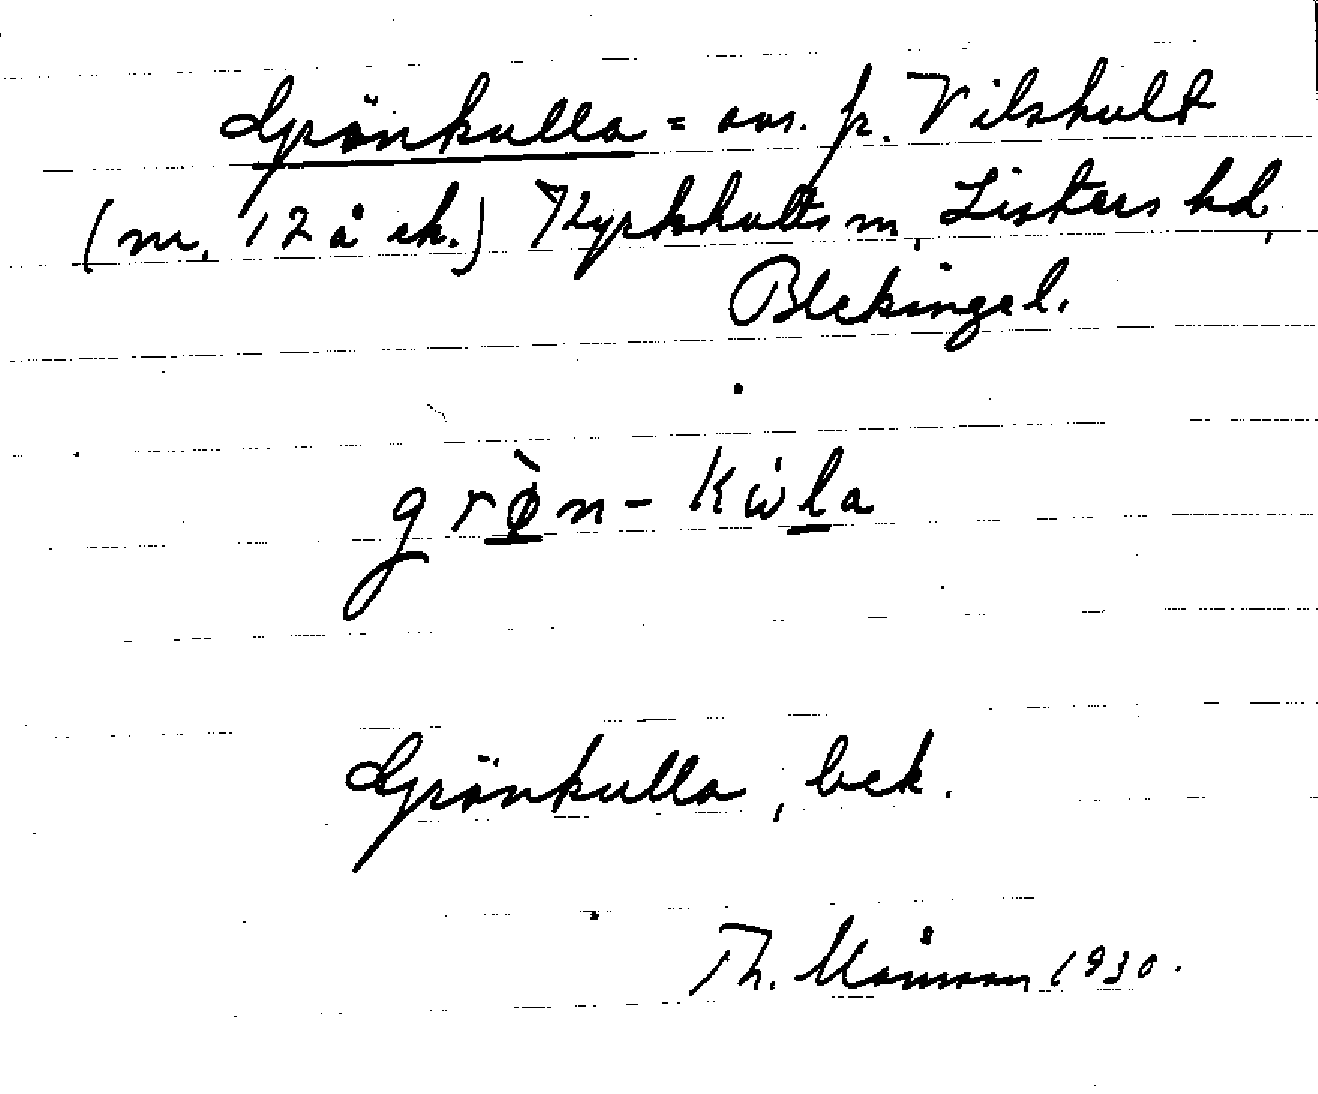 Grönkulla = avs. fr. Vilshult
(nr. 12 å ek.) Kyrkhults sn, Listers hd,
Blekinge l.
grø̀n-kẁla
Grönkulla, bek.
Th. Månsson 1930.